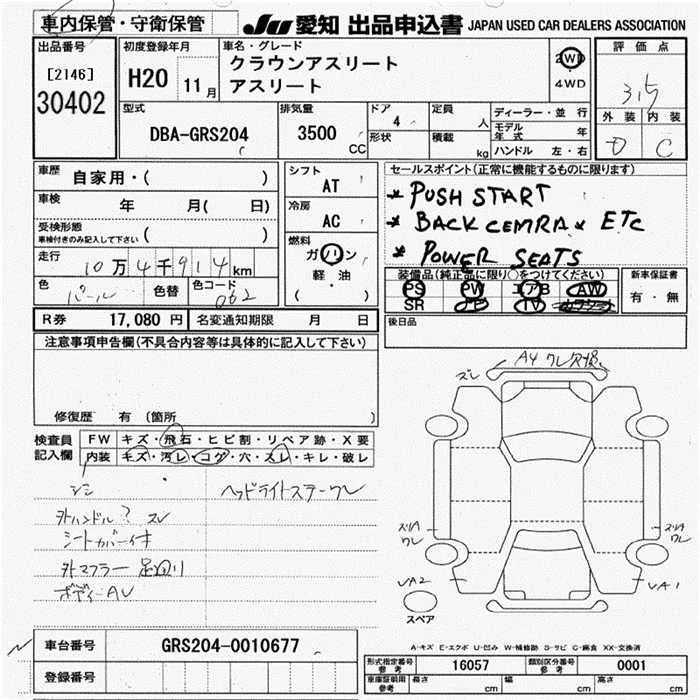 車内保管・守衛保管
JU 愛知 出品申込書 JAPAN USED CAR DEALERS ASSOCIATION
出品番号
[2146]
30402
初度登録年月
H20 11月
車名・グレード
クラウンアスリート
アスリート
2WD
4WD
評価点
3.5
外装 内装
D C
型式
DBA-GRS204
排気量
3500 CC
ドア 4
形状
定員 人
積載 kg
ディーラー・並行
モデル年式 年
ハンドル 左・右
車歴 自家用・( )
車検 年 月( 日)
受検形態
車検付きのみ記入して下さい ( )
走行 10万4千914km
色 パール 色替 色コード 062
シフト AT
冷房 AC
燃料
ガソリン
軽・油
( )
セールスポイント(正常に機能するものに限ります)
* PUSH START
* BACK CEMRA * ETC
* POWER SEATS
装備品(純正品に限り○をつけてください)
PS PW エアB AW
SR ナビ TV カワシート
新車保証書
有・無
R券 17,080円 名変通知期限 月 日
後日品
注意事項申告欄(不具合内容等は具体的に記入して下さい)
修復歴 有(箇所 )
検査員記入欄
FW キズ・飛石・ヒビ割・リペア跡・X要
内装 キズ・汚レ・コゲ・穴・スレ・キレ・破レ
シミ
ヘッドライトステーワレ
外ハンドル? スレ
シートカバー付
外マフラー 足回り
ボディーAU
ズレ
A4 ワレ欠損
スリA
ワレ
スリA
ワレ
UA2
UA1
スペア
A-キズ E-エクボ U-凹み W-補修跡 S-サビ C-腐食 XX-交換済
車台番号 GRS204-0010677
登録番号
型式指定番号 参考 16057 類別区分番号 参考 0001
車庫証明用参考 長さ cm 幅 cm 高さ cm